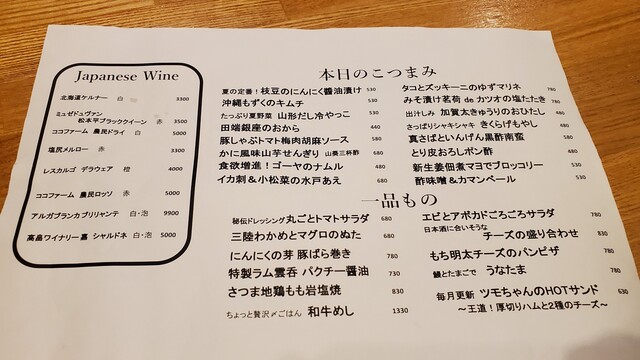 Japanese Wine
北海道ケルナー 白 3300
ミュゼドュヴァン
松本平ブラッククイーン 赤 3500
ココファーム 農民ドライ 白 5000
塩尻メルロー 赤 3300
レスカルゴ デラウェア 橙 4000
ココファーム 農民ロッソ 赤 5000
アルガブランカブリリャンテ 白・泡 9900
高畠ワイナリー嘉 シャルドネ 白・泡 5000
本日のこつまみ
夏の定番!枝豆のにんにく醤油漬け 530
沖縄もずくのキムチ 530
たっぷり夏野菜 山形だし冷やっこ 530
田端銀座のおから 440
豚しゃぶトマト梅肉胡麻ソース 580
かに風味山芋せんぎり 山葵三杯酢 680
食欲増進!ゴーヤのナムル 480
イカ刺&小松菜の水戸あえ 680
タコとズッキーニのゆずマリネ 780
みそ漬け茗荷 de カツオの塩たたき 780
出汁しみ 加賀太きゅうりのおひたし 480
さっぱりシャキシャキ きくらげもやし 480
真さばといんげん黒酢南蛮 580
とり皮おろしポン酢 480
新生姜佃煮マヨでブロッコリー 530
酢味噌&カマンベール 530
一品もの
秘伝ドレッシング 丸ごとトマトサラダ 680
三陸わかめとマグロのぬた 680
にんにくの芽 豚ばら巻き 780
特製ラム雲呑 パクチー醤油 730
さつま地鶏もも岩塩焼 830
ちょっと贅沢〆ごはん 和牛めし 1330
エビとアボカドごろごろサラダ 780
日本酒に合いそうな
チーズの盛り合わせ 830
もち明太チーズのパンピザ 780
鰻とたまごで うなたま 780
毎月更新 ツモちゃんのHOTサンド 630
~王道!厚切りハムと2種のチーズ~